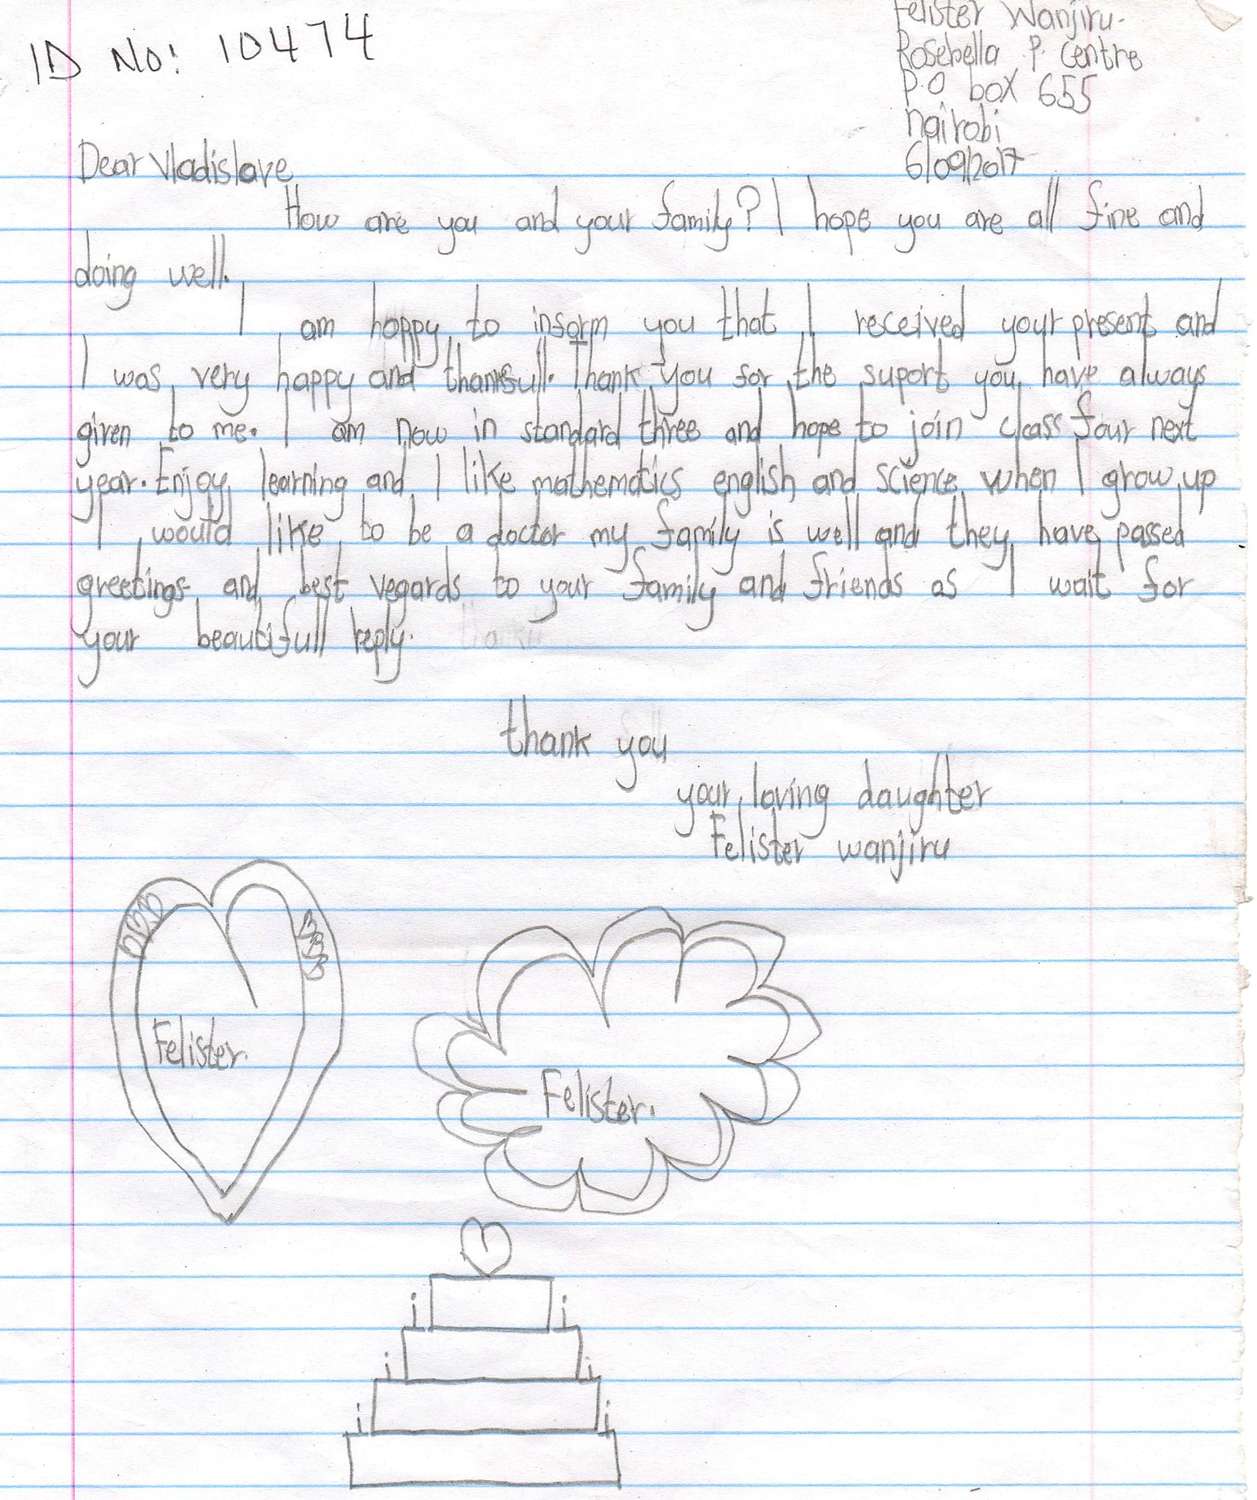 ID No: 10474
Felister Wanjiru.
Rosebella P. Centre
P.O box 655
nairobi
6/09/2017
Dear Vladislave
How are you and your family? I hope you are all fine and
doing well.
I am happy to inform you that I received your present and
I was very happy and thankfull. Thank you for the suport you have always
given to me. I am now in standard three and hope to join class four next
year. Enjoy learning and I like mathematics english and science when I grow up
I would like to be a doctor my family is well and they have passed
greetings and best vegards to your family and friends as I wait for
your beautifull reply.
thank you
your loving daughter
Felister wanjiru
Felister.
Felister.